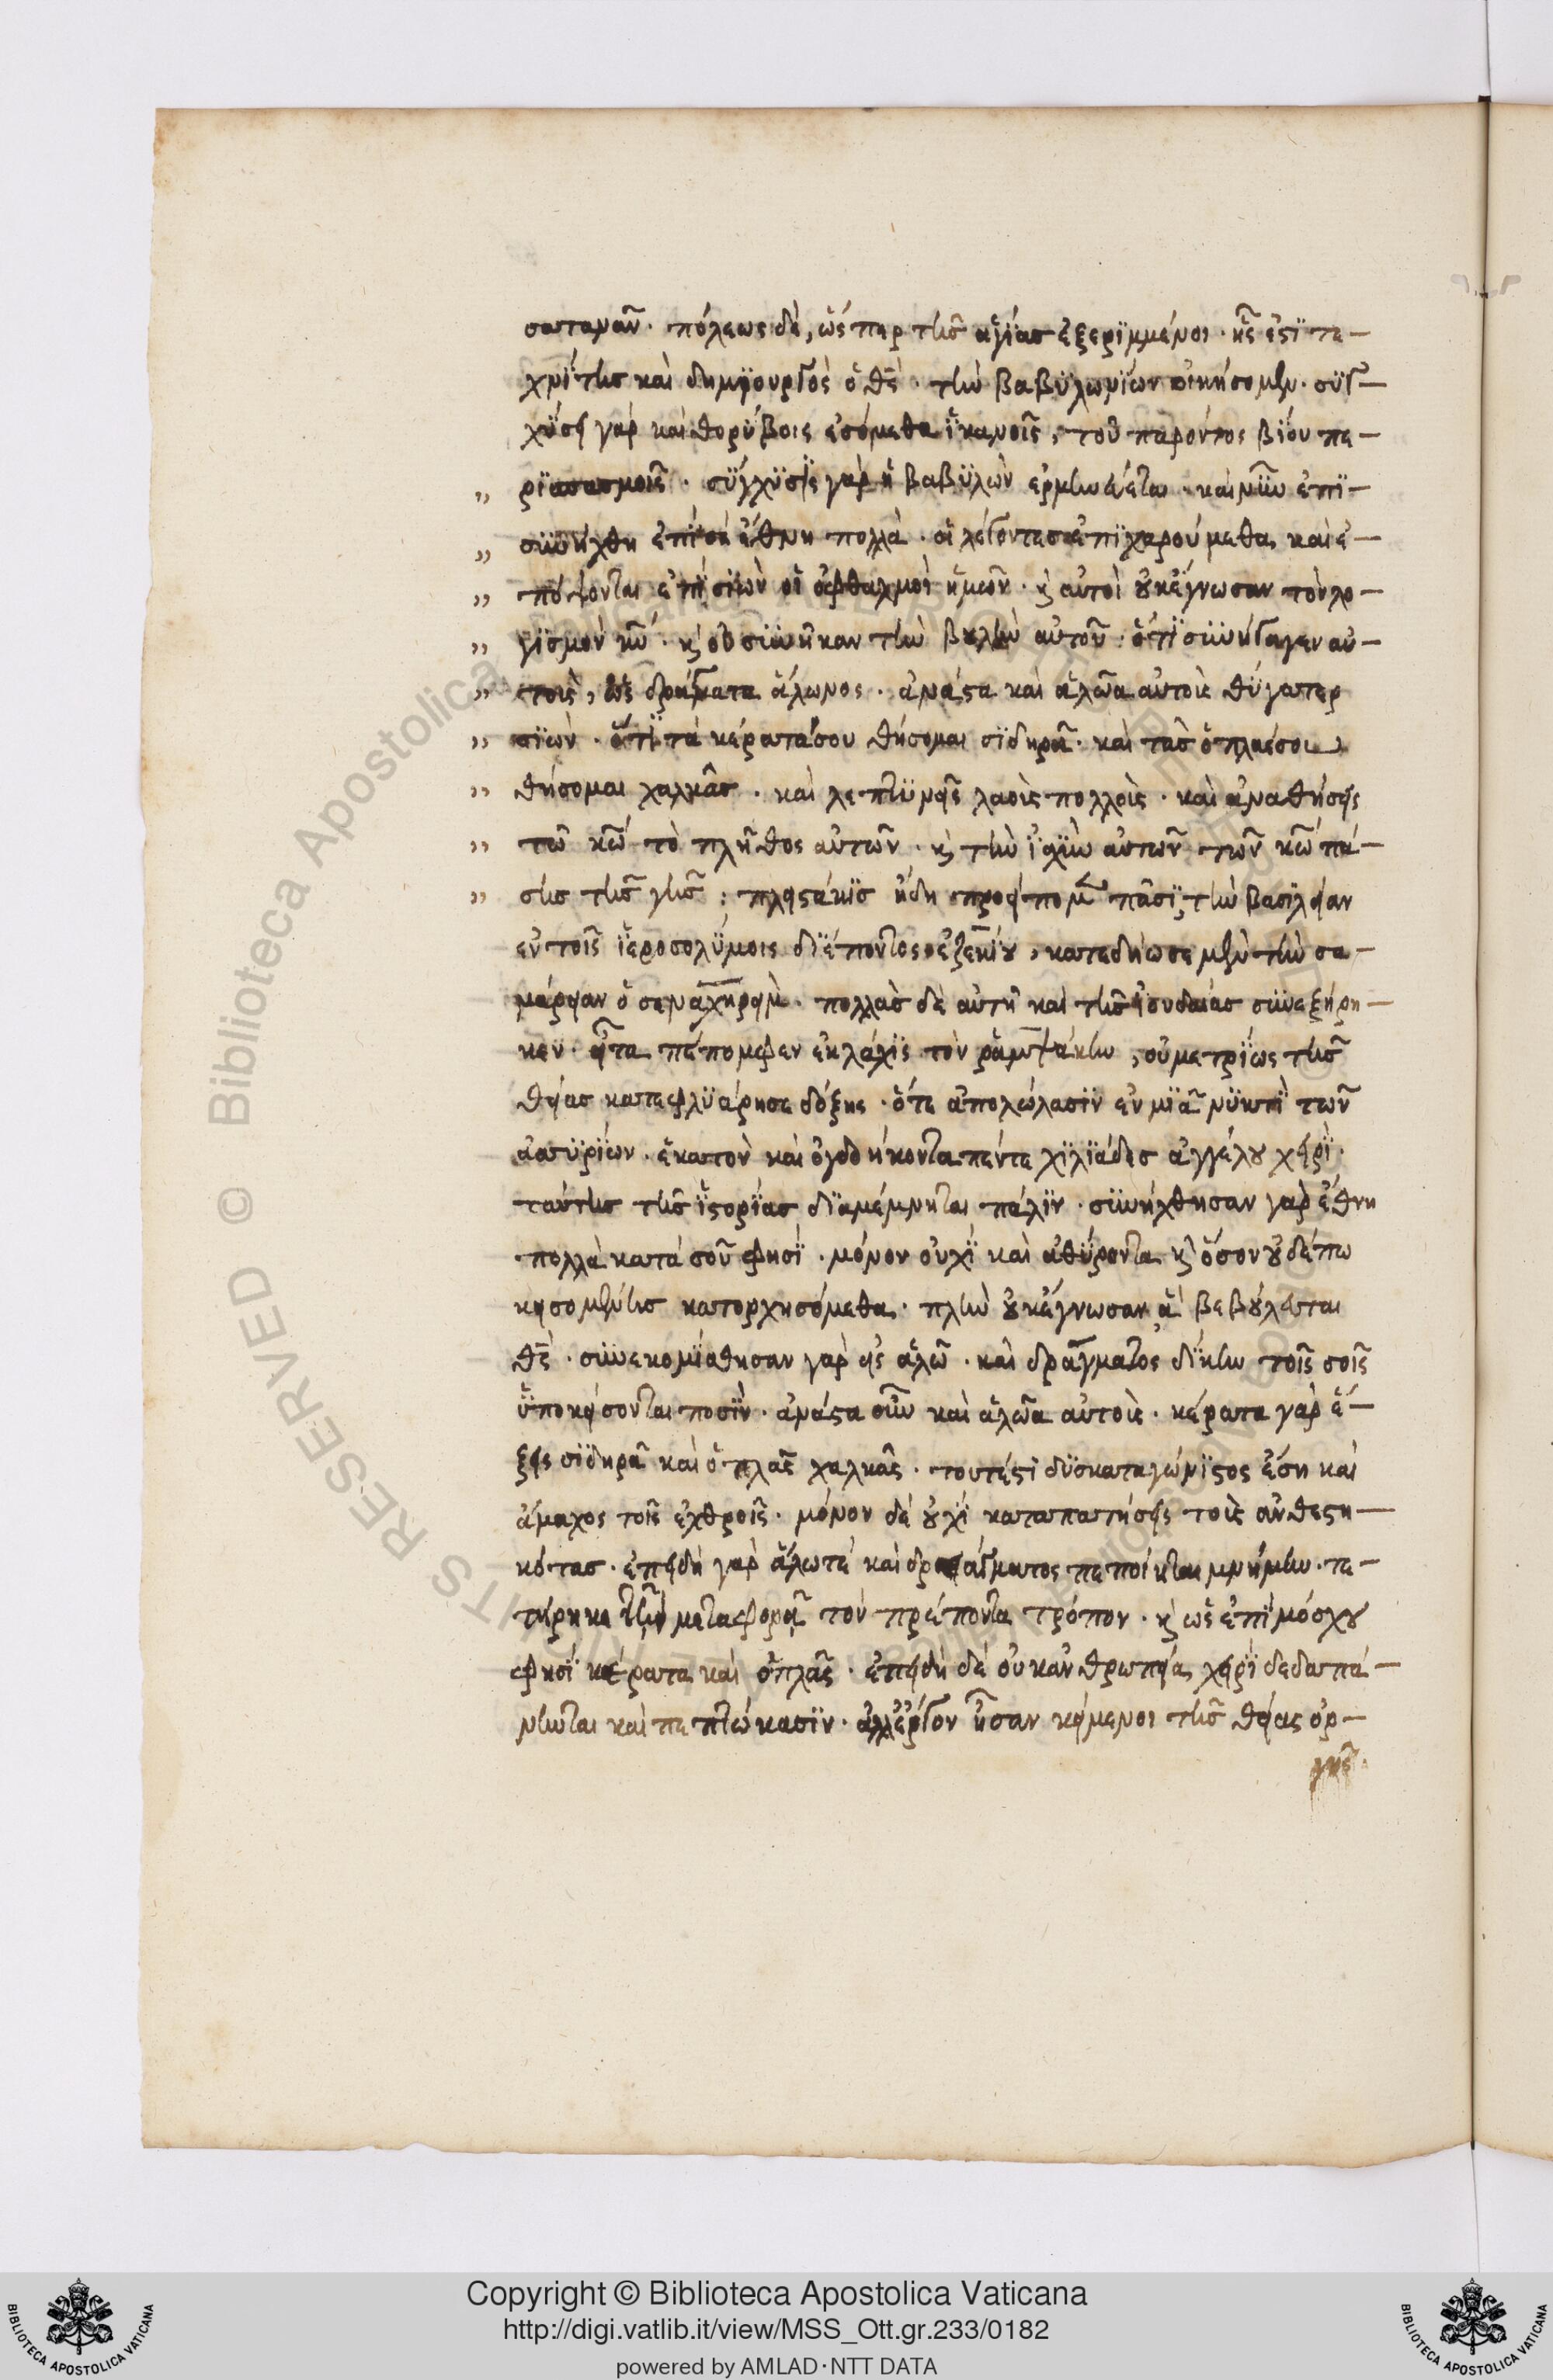 σαταναν. πόλεως δὲ, ὥσπερ τῆς ἁγίας ἐξεριμμένοι. ἧς ἐστὶ τε-
χνίτης καὶ δημιουργὸς ὁ θς. τὴν βαβυλωνίων οἰκήσομεν. συγ-
χύσει γὰρ καὶ θορύβοις ἐσόμεθα ἱκανοῖς, τοῦ παρόντος βίου πε-
ρισπασμοῖς. σύγχυσις γὰρ ἡ βαβυλὼν ἑρμηνεύεται. καὶ νῦν ἐπι-
συνήχθη ἐπὶ σὲ ἔθνη πολλὰ. οἱ λέγοντες ἐπιχαρούμεθα, καὶ ἐ-
πόψονται ἐπὶ σιὼν οἱ ὀφθαλμοὶ ἡμῶν. κ αὐτοὶ οὐκ ἔγνωσαν τὸν λο-
γισμὸν κυ. κ οὐ συνῆκαν τὴν βουλὴν αὐτοῦ. ὅτι συνήγαγεν αὐ-
τοὺς, ὡς δράγματα ἅλωνος. ἀνάστα καὶ ἀλόα αὐτοὺς θύγατερ
σιών. ὅτι τὰ κέρατά σου θήσομαι σιδηρᾶ. καὶ τὰς ὁπλάς σου
θήσομαι χαλκᾶς. καὶ λεπτυνεῖς λαοὺς πολλοὺς. καὶ ἀναθήσεις
τῶ κω τὸ πλῆθος αὐτῶν. κ τὴν ἰσχὺν αὐτῶν τῶ κω πά-
σης τῆς γῆς: πλειστάκις ἤδη προείπομεν πᾶσι, τὴν βασιλείαν
ἐν τοῖς ἱεροσολύμοις διέποντος ἐζεκίου, κατεδήωσε μὲν τὴν σα-
μάρειαν ὁ σεναχηρεὶμ. πολλὰς δὲ αὐτῆ καὶ τῆς ἰουδαίας συνεξήρη-
κεν. εἶτα πέπομφεν ἐκ λάχις τὸν ῥαμψάκην, οὐ μετρίως τῆς
θείας κατεφλυάρησε δόξης. ὅτε ἀπολώλασιν ἐν μιᾶ νυκτὶ τῶν
ἀσσυρίων. ἑκατὸν καὶ ὀγδοήκοντα πέντε χιλιάδες ἀγγέλου χειρὶ.
ταύτης τῆς ἱστορίας διαμέμνηται πάλιν. συνήχθησαν γὰρ ἔθνη
πολλὰ κατὰ σοῦ φησὶ. μόνον οὐχὶ καὶ ἀθύροντα κ ὅσον οὐδέπω
κεισομένης κατορχησόμεθα. πλὴν οὐκ ἔγνωσαν ἃ βεβούλευται
θς. συνεκομίσθησαν γὰρ εἰς ἅλω. καὶ δράγματος δίκην τοῖς σοῖς
ὑποκείσονται ποσὶν. ἀνάστα οὖν καὶ ἀλόα αὐτοὺς. κέρατα γὰρ ἕ-
ξεις σιδηρᾶ καὶ ὁπλὰς χαλκᾶς. τουτέστι δυσκαταγώνιστος ἔση καὶ
ἄμαχος τοῖς ἐχθροῖς. μόνον δὲ οὐχὶ καταπατήσεις τοὺς ἀνθεστη-
κότας. ἐπειδὴ γὰρ ἅλω τὲ καὶ δράγματος πεποίηται μνήμην. τε-
τήρηκε τὴν μεταφορᾶ τὸν πρέποντα τρόπον. κ ὡς ἐπὶ μόσχου
φησὶ κέρατα καὶ ὁπλὰς. ἐπειδὴ δὲ οὐκ ἀνθρωπεία χειρὶ δεδαπά-
νηνται καὶ πεπτώκασιν. ἀλλ' ἔργον ἦσαν κείμενοι τῆς θείας ὀρ-
γῆς.
Copyright © Biblioteca Apostolica Vaticana
http://digi.vatlib.it/view/MSS_Ott.gr.233/0182
powered by AMLAD·NTT DATA